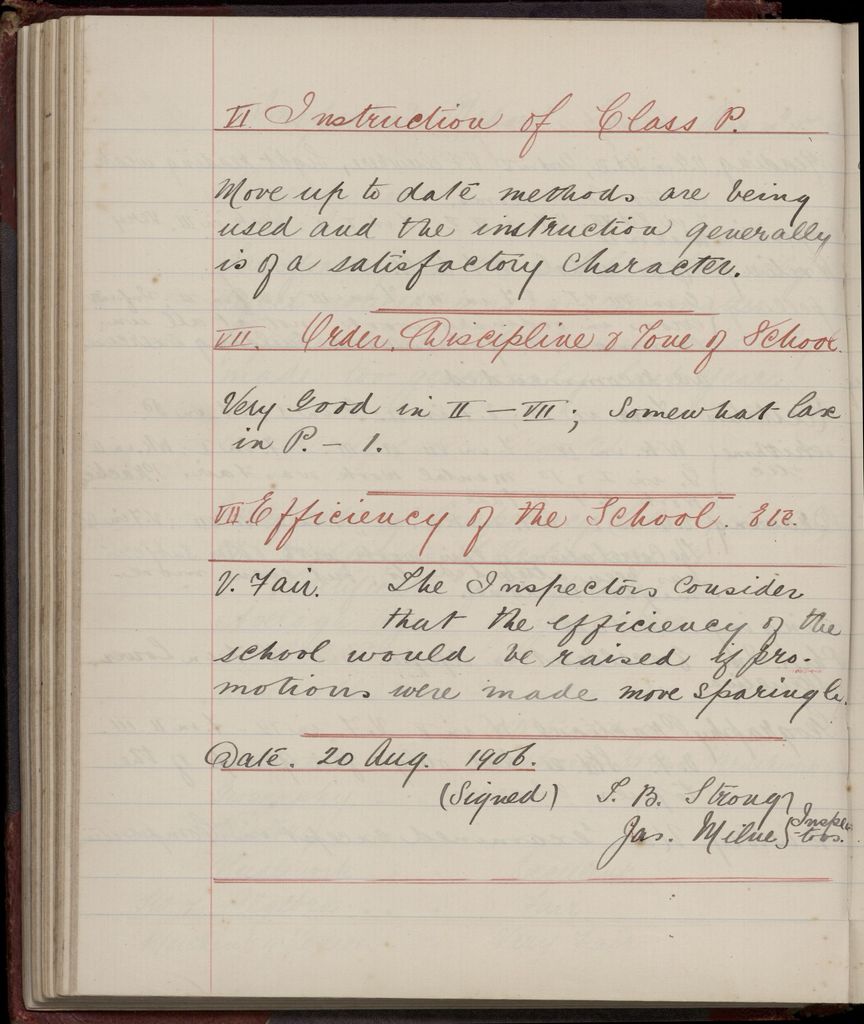 VI Instruction of Class P.
More up to date methods are being
used and the instruction generally
is of a satisfactory character.
VII. Order, Discipline & Tone of School.
Very Good in II – VII; Somewhat lax
in P. – 1.
VII. Efficiency of the School. Etc.
V. Fair. The Inspectors consider
that the efficiency of the
school would be raised if pro-
motions were made more sparingly.
Date. 20 Aug. 1906.
(Signed) T. B. Strong
Jas. Milne } Inspec-
tors.